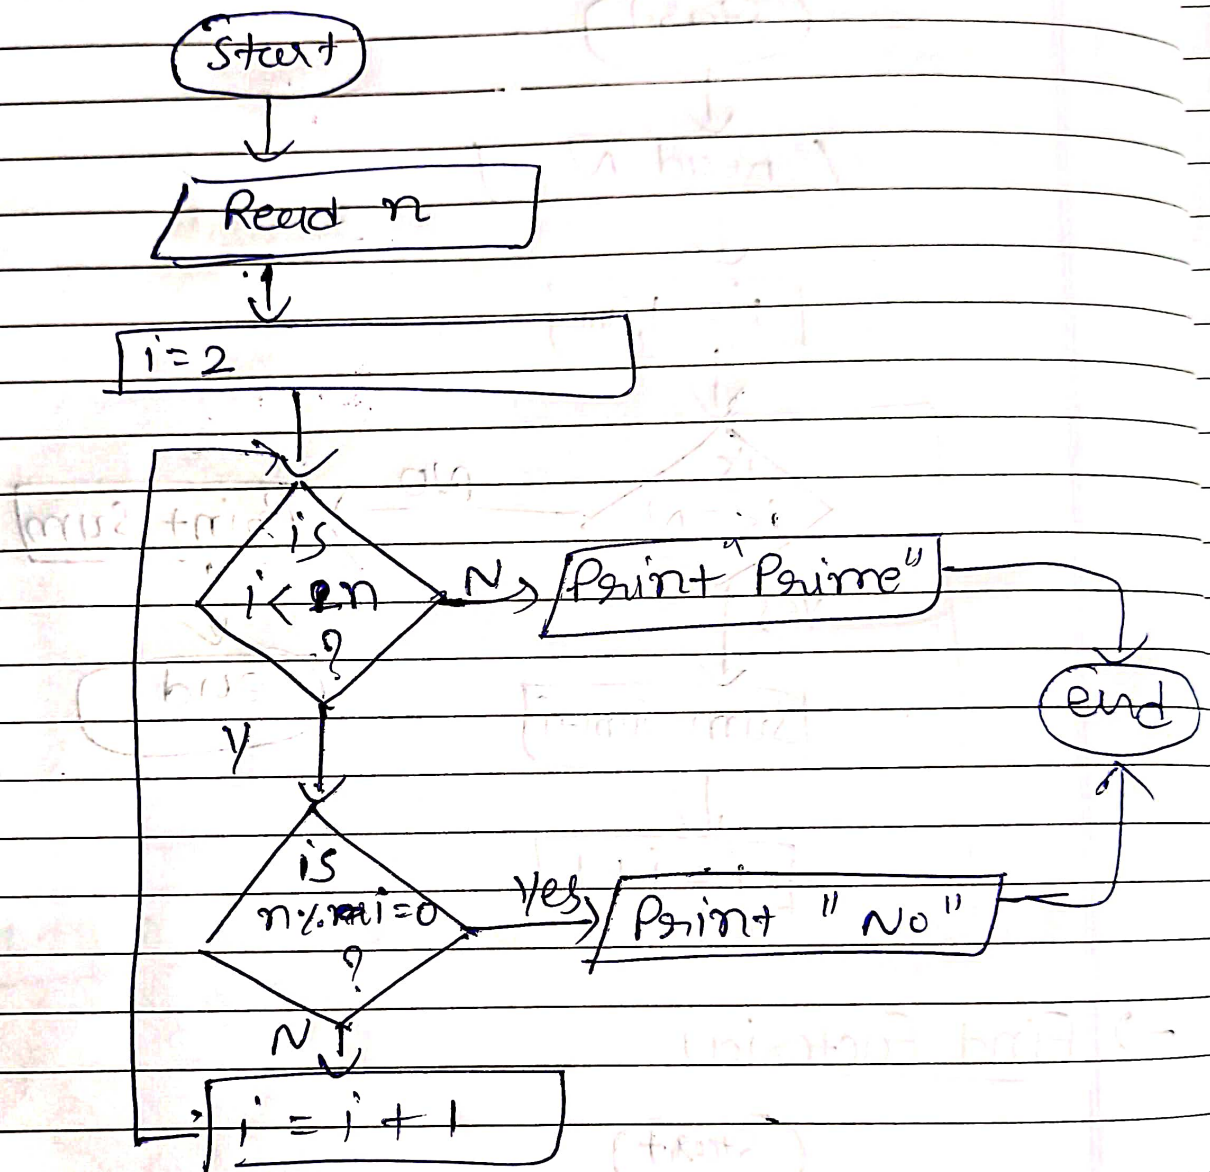 Start
Read n
i = 2
is
i < n
?
N
Print "Prime"
end
Y
is
n % i = 0
?
Yes
Print "No"
N
i = i + 1